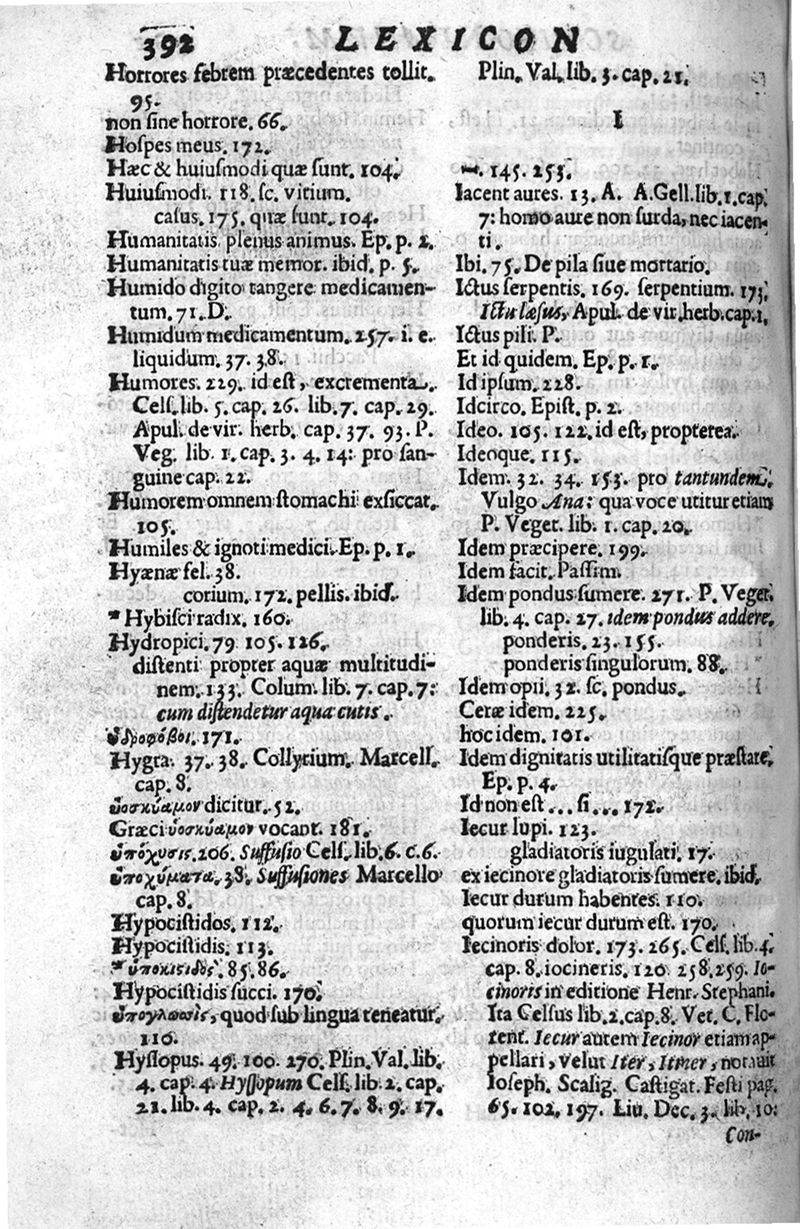 392 LEXICON
Horrores febrem præcedentes tollit.
95.
non sine horrore. 66.
Hospes meus. 172.
Hæc & huiusmodi quæ sunt. 104.
Huiusmodi. 118. sc. vitium.
casus. 175. quæ sunt. 104.
Humanitatis plenus animus. Ep. p. 2.
Humanitatis tuæ memor. ibid. p. 5.
Humido digito tangere medicamen-
tum. 71. D.
Humidum medicamentum. 257. i. e.
liquidum. 37. 38.
Humores. 229. id est, excrementa.
Cels. lib. 5. cap. 26. lib. 7. cap. 29.
Apul. de vir. herb. cap. 37. 93. P.
Veg. lib. 1. cap. 3. 4. 14: pro san-
guine cap. 22.
Humorem omnem stomachi exsiccat.
105.
Humiles & ignoti medici. Ep. p. 1.
Hyænæ fel. 38.
corium. 172. pellis. ibid.
* Hybisci radix. 160.
Hydropici. 79 105. 126.
distenti propter aquæ multitudi-
nem. 133. Colum. lib. 7. cap. 7:
cum distendetur aqua cutis.
ὑδροφόβοι. 171.
Hygra. 37. 38. Collyrium. Marcell.
cap. 8.
ὑοσκύαμον dicitur. 52.
Græci ὑοσκύαμον vocant. 181.
ὑπόχυσις. 206. Suffusio Cels. lib. 6. c. 6.
ὑποχύματα. 38. Suffusiones Marcello
cap. 8.
Hypocistidos. 112.
Hypocistidis. 113.
* ὑποκιςιδὸς. 85. 86.
Hypocistidis succi. 170.
ὑπογλωσσὶς, quod sub lingua teneatur.
110.
Hyssopus. 49. 100. 270. Plin. Val. lib.
4. cap. 4. Hyssopum Cels. lib. 2. cap.
21. lib. 4. cap. 2. 4. 6. 7. 8. 9. 17.
Plin. Val. lib. 3. cap. 21.
I
145. 253.
Iacent aures. 13. A. A. Gell. lib. 1. cap.
7: homo aure non surda, nec iacen-
ti.
Ibi. 75. De pila siue mortario.
Ictus serpentis. 169. serpentium. 173.
Ictu læsus, Apul. de vir. herb. cap. 1.
Ictus pili. P.
Et id quidem. Ep. p. 1.
Id ipsum. 228.
Idcirco. Epist. p. 2.
Ideo. 105. 122. id est, propterea.
Ideoque. 115.
Idem. 32. 34. 153. pro tantundem.
Vulgo Ana: qua voce utitur etiam
P. Veget. lib. 1. cap. 20.
Idem præcipere. 199.
Idem facit. Passim.
Idem pondus sumere. 271. P. Veget.
lib. 4. cap. 27. idem pondus addere.
ponderis. 23. 155.
ponderis singulorum. 88.
Idem opii. 32. sc. pondus.
Ceræ idem. 225.
hoc idem. 101.
Idem dignitatis utilitatisque præstare.
Ep. p. 4.
Id non est... si... 172.
Iecur lupi. 123.
gladiatoris iugulati. 17.
ex iecinore gladiatoris sumere. ibid.
Iecur durum habentes. 110.
quorum iecur durum est. 170.
Iecinoris dolor. 173. 265. Cels. lib. 4.
cap. 8. iocineris. 120 258. 259. Io-
cinoris in editione Henr. Stephani.
Ita Celsus lib. 2. cap. 8. Vet. C. Flo-
rent. Iecur autem Iecinor etiam ap-
pellari, velut Iter, Itiner, notauit
Ioseph. Scalig. Castigat. Festi pag.
65. 102. 197. Liu. Dec. 3. lib. 10:
Con-